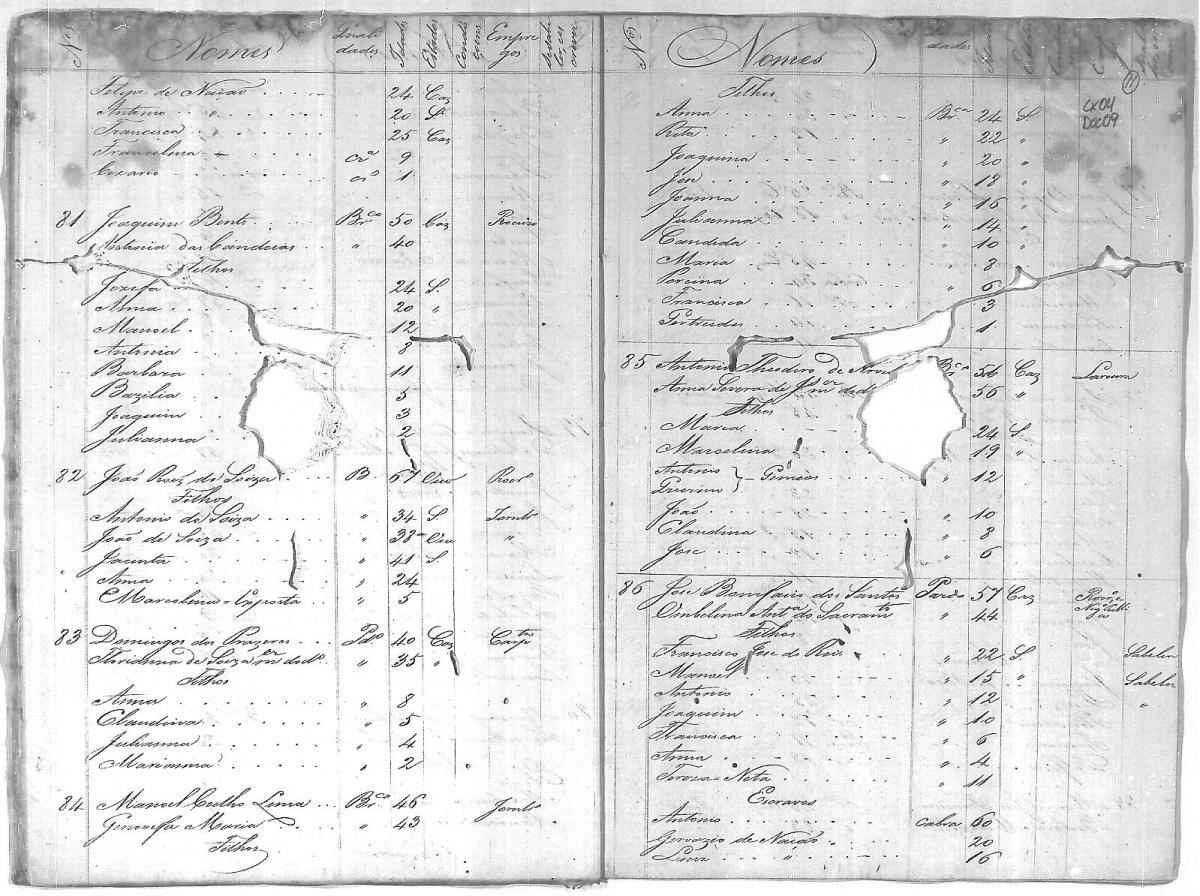 Nos Nomes Quali dades Idades Estados Condi çoens Empre gos
Felipe de Nação 24 Caz
Antonio " 20 S.
Francisca " 25 Caz
Francelina crª 9
Cezario crº 1
81 Joaquim Bento Brco 50 Caz Roceiro
Antonia das Candeias " 40
Filhos
Jozefa 24 S.
Anna 20 "
Manoel 12
Antonia 8
Barbara 11
Bazilia 5
Joaquim 3
Julianna 2
82 João Roiz de Soiza B. 67 Viuv Rocrº
Filhos
Antonio de Soiza " 34 S.
João de Soiza " 38 Viuv "
Jacinta " 41 S.
Anna " 24
Marcelina = Exposta " 5
83 Domingos dos Prazeres Pdº 40 Caz Carptro
Floridunna de Soiza mer do dº " 35 "
Filhos
Anna " 8
Claudina " 5
Julianna " 4
Marianna " 2
84 Manoel Coelho Lima Brco 46
Genovefa Maria " 43
Filhos
Nos Nomes dades
11
CX04
DOC09
Filhos
Anna Brca 24 S.
Rita " 22 "
Joaquina " 20 "
Jose " 18 "
Joanna " 16 "
Julianna " 14 "
Candida " 10 "
Maria " 8
Porcina 6
Francisca 3
Gertrudes 1
85 Antonio Theodoro de 56 Caz Lavoura
Anna Severa de mer do dº 56 "
Filhos
Maria 24 S.
Marcelina 19 "
Antonio } Gemeos " 12
João " 10
Claudina " 8
Jose " 6
86 Jose Bonifacio dos Santos Pardo 57 Caz
Umbelina Antª do Sacramto " 44
Filhos
Francisco Jose do Reis " 22 S. Sabeler
Manoel " 15 " Sabeler
Antonio " 12 "
Joaquim " 10
Francisca " 6
Anna " 4
Tereza = Neta " 11
Escravos
Antonio cabra 60
Gervazio de Nação 20
" 16